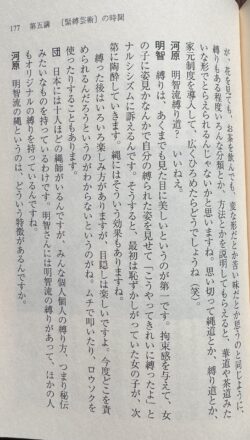 177　第五講　［緊縛芸術］の時間
が、花を見ても、お茶を飲んでも、変な形だとか苦い味だとか思うのと同じように、
縛りもある程度いろんな分類とか、方法とかを説明してもらえると、華道や茶道みた
いな形でとらえられるんじゃないかと思いますね。思い切って縄道とか、縛り道とか、
家元制度を導入して、広くひろめたらどうでしょうね（笑）。
河原　明智流縛り道？　いいねえ。
明智　縛りは、あくまでも見た目に美しいというのが第一です。拘束感を与えて、女
の子に姿見かなんかで自分の縛られた姿を見せて「こうやってきれいに縛ったよ」と
ナルシシズムに訴えるんです。そうすると、最初は恥ずかしがっていた女の子が、次
第に陶酔していきます。縄にはそういう効果もありますね。
縛った後はいろいろ楽しみ方がありますが、目隠しは楽しいですよ。今度どこを責
められるんだろうというのがわからないというのがね。ムチで叩いたり、ロウソクを
使ったりすることもあります。
団　日本には十人ほどの縄師がいるんですが、みんな個人個人の縛り方、つまり秘伝
みたいなものを持っているわけです。明智さんには明智流の縛りがあって、ほかの人
もオリジナルの縛りを持っているんですね。
河原　明智流というのは、どういう特徴があるんですか。